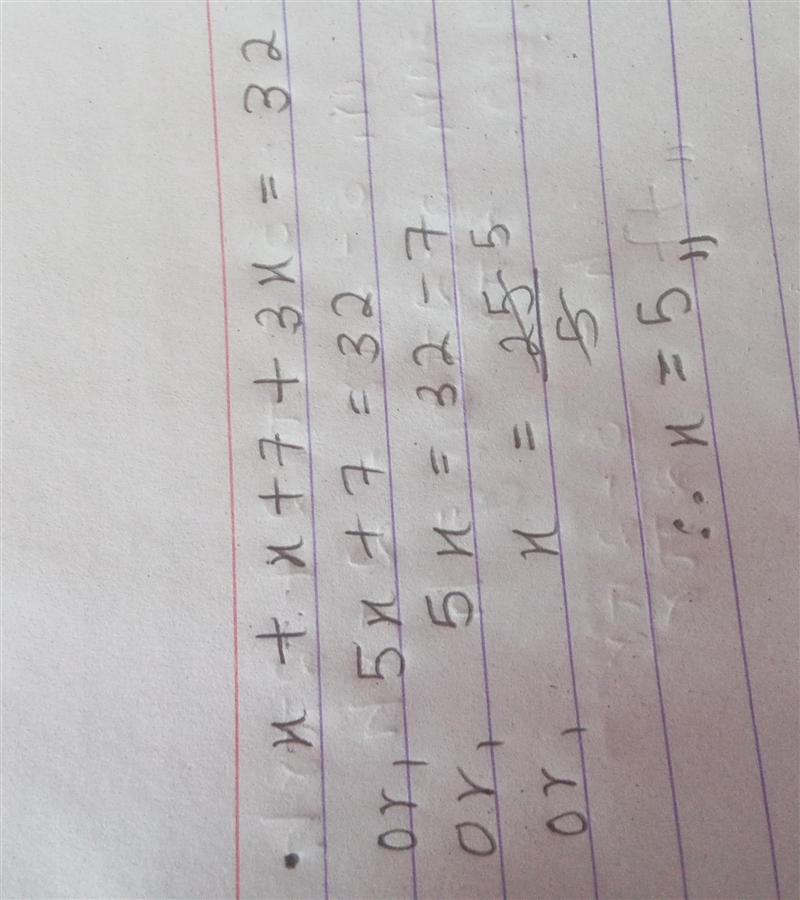 • x + x + 7 + 3x = 32
or, 5x + 7 = 32
or, 5x = 32 - 7
or, x = 25/5 5
∴ x = 5 "